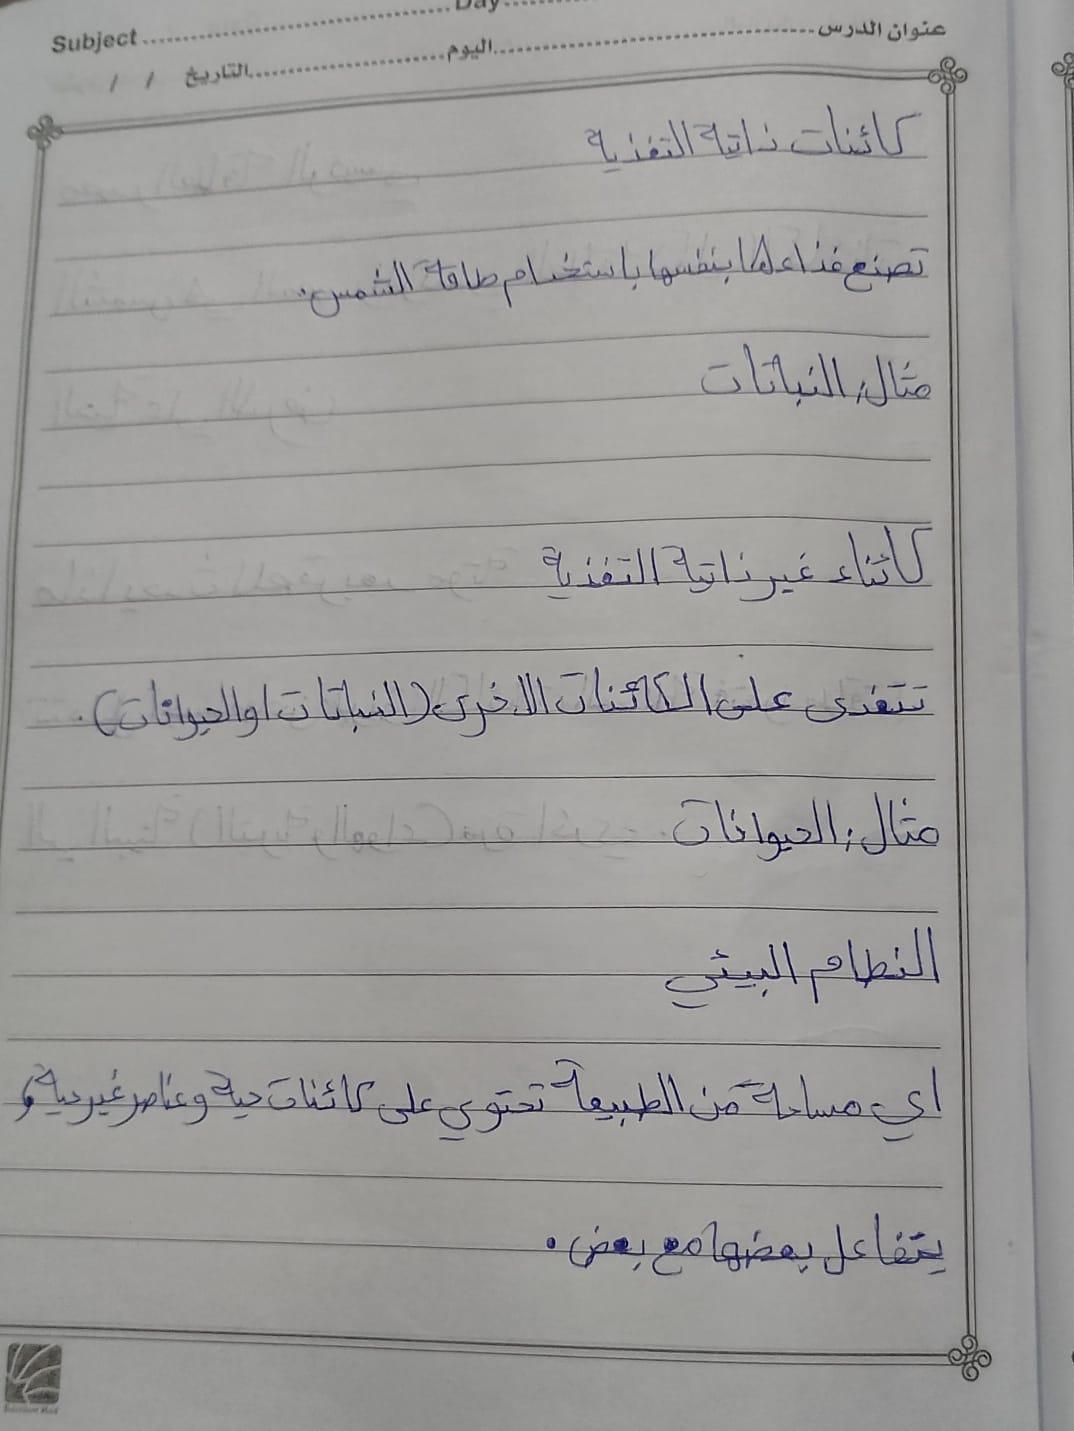 Subject ........ Day
عنوان الدرس ........ اليوم ........ التاريخ / /
كائنات ذاتية التغذية
تصنع غذاءها بنفسها باستخدام طاقة الشمس.
مثال: النباتات
كائناء غير ذاتية التغذية
تتغذى على الكائنات الاخرى (النباتات او الحيوانات).
مثال: الحيوانات
النظام البيئي
اي مساحة من الطبيعة تحتوي على كائنات حية وعناصر غير حية و
يتفاعل بعضها مع بعض.